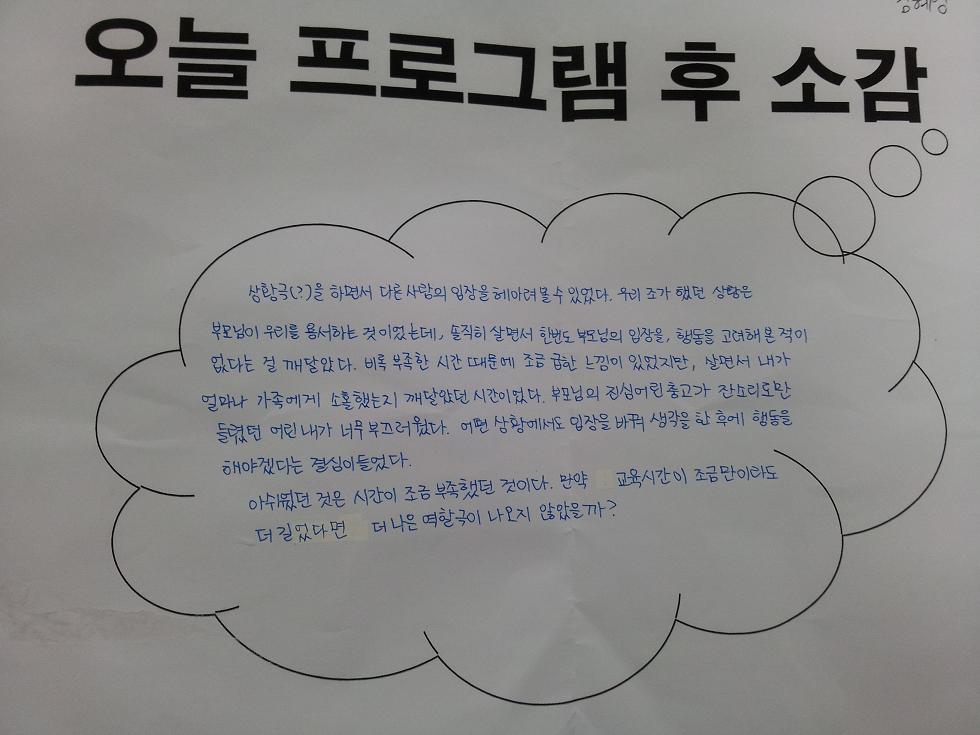 오늘 프로그램 후 소감
상황극(?)을 하면서 다른 사람의 입장을 헤아려 볼 수 있었다. 우리 조가 했던 상황은
부모님이 우리를 용서하는 것이었는데, 솔직히 살면서 한번도 부모님의 입장을, 행동을 고려해 본 적이
없다는 걸 깨달았다. 비록 부족한 시간 때문에 조금 급한 느낌이 있었지만, 살면서 내가
얼마나 가족에게 소홀했는지 깨달았던 시간이었다. 부모님의 진심어린 충고가 잔소리로만
들렸던 어린 내가 너무 부끄러웠다. 어떤 상황에서도 입장을 바꿔 생각을 한 후에 행동을
해야겠다는 결심이 들었다.
아쉬웠던 것은 시간이 조금 부족했던 것이다. 만약 교육시간이 조금만이라도
더 길었다면 더 나은 역할극이 나오지 않았을까?